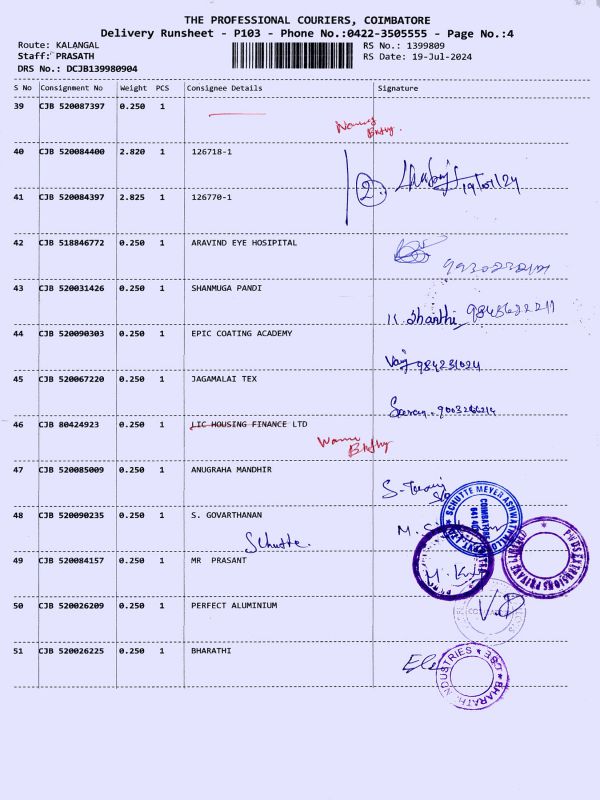 THE PROFESSIONAL COURIERS, COIMBATORE
Delivery Runsheet - P103 - Phone No.:0422-3505555 - Page No.:4
Route: KALANGAL
RS No.: 1399809
Staff: PRASATH
RS Date: 19-Jul-2024
DRS No.: DCJB139980904
S No Consignment No Weight PCS Consignee Details Signature
39 CJB 520087397 0.250 1
40 CJB 520084400 2.820 1 126718-1
41 CJB 520084397 2.825 1 126770-1
2
42 CJB 518846772 0.250 1 ARAVIND EYE HOSIPITAL
43 CJB 520031426 0.250 1 SHANMUGA PANDI
44 CJB 520090303 0.250 1 EPIC COATING ACADEMY
45 CJB 520067220 0.250 1 JAGAMALAI TEX
46 CJB 80424923 0.250 1 LIC HOUSING FINANCE LTD
47 CJB 520085009 0.250 1 ANUGRAHA MANDHIR
48 CJB 520090235 0.250 1 S. GOVARTHANAN
Schutte.
49 CJB 520084157 0.250 1 MR PRASANT
50 CJB 520026209 0.250 1 PERFECT ALUMINIUM
51 CJB 520026225 0.250 1 BHARATHI